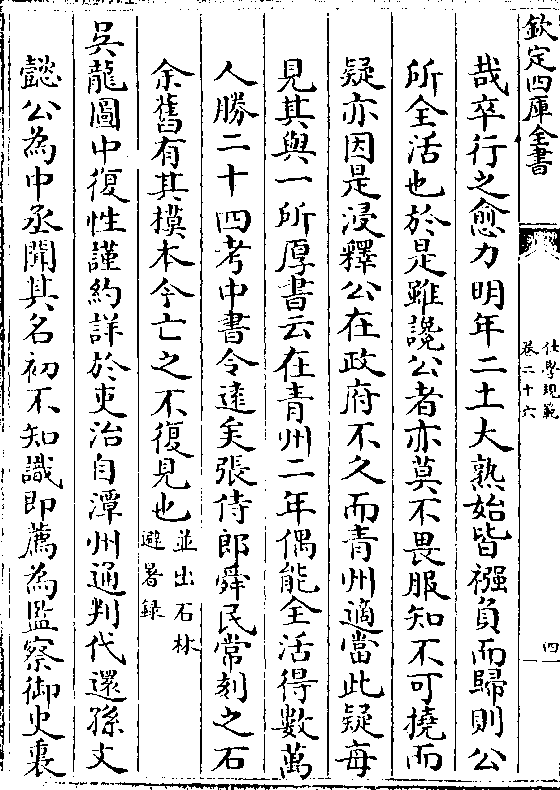 欽定四庫全書
仕學規範
卷二十六
四
哉卒行之愈力明年二土大熟始皆襁負而歸則公
所全活也於是雖讒公者亦莫不畏服知不可撓而
疑亦因是浸釋公在政府不久而青州適當此疑每
見其與一所厚書云在青州二年偶能全活得數萬
人勝二十四考中書令逺矣張侍郎舜民常刻之石
余舊有其模本今亡之不復見也並出石林避暑錄
吳龍圖中復性謹約詳於吏治自潭州通判代還孫文
懿公為中丞聞其名初不知識即薦為監察御史裏